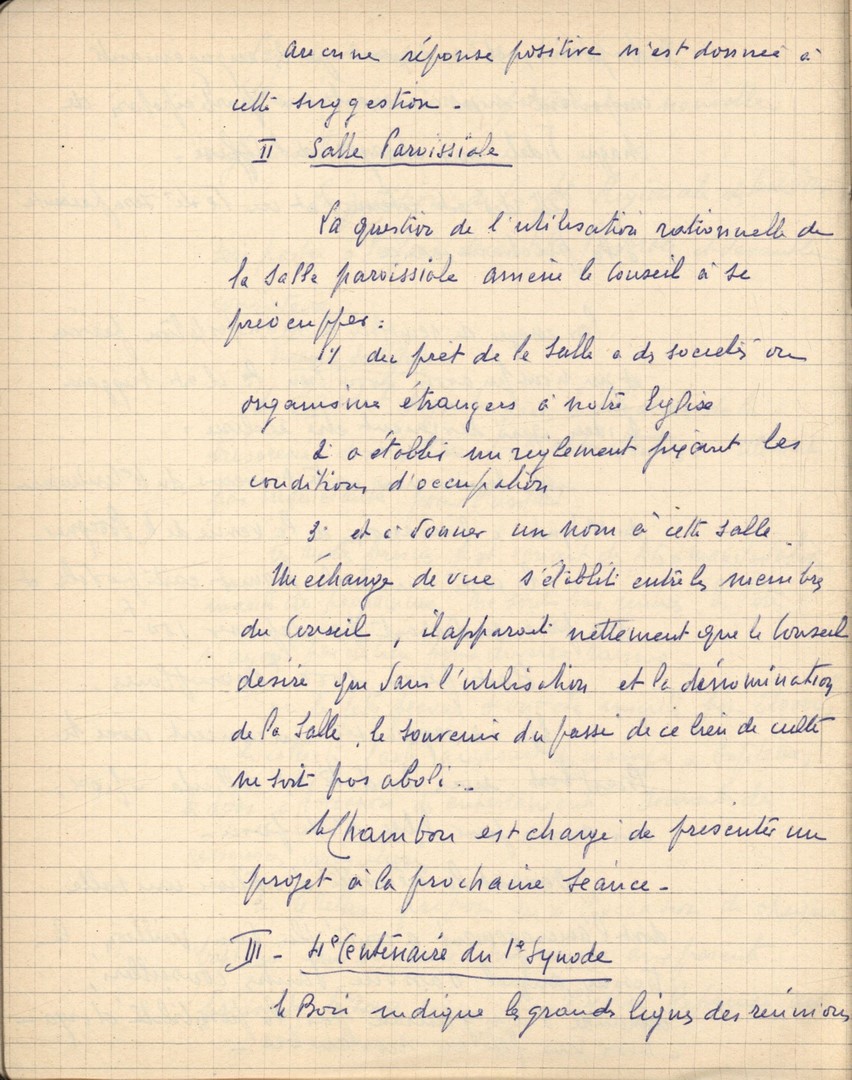 aucune réponse positive n'est donnée à
cette suggestion -
II Salle Paroissiale
La question de l'utilisation rationnelle de
la salle paroissiale amène le Conseil à se
préocupper :
1°/ du prêt de la salle à des sociétés ou
organisme étrangers à notre Eglise
2° à établir un règlement fixant les
conditions d'occupation
3° et à donner un nom à cette salle
Un échange de vue s'établit entre les membres
du Conseil, il apparait nettement que le Conseil
désire que dans l'utilisation et la dénomination
de la salle, le souvenir du passé de ce lieu de culte
ne soit pas aboli..
Chambon est chargé de présenter un
projet à la prochaine séance -
III - 4e Centenaire du 1er Synode
indique les grands lignes des réunions